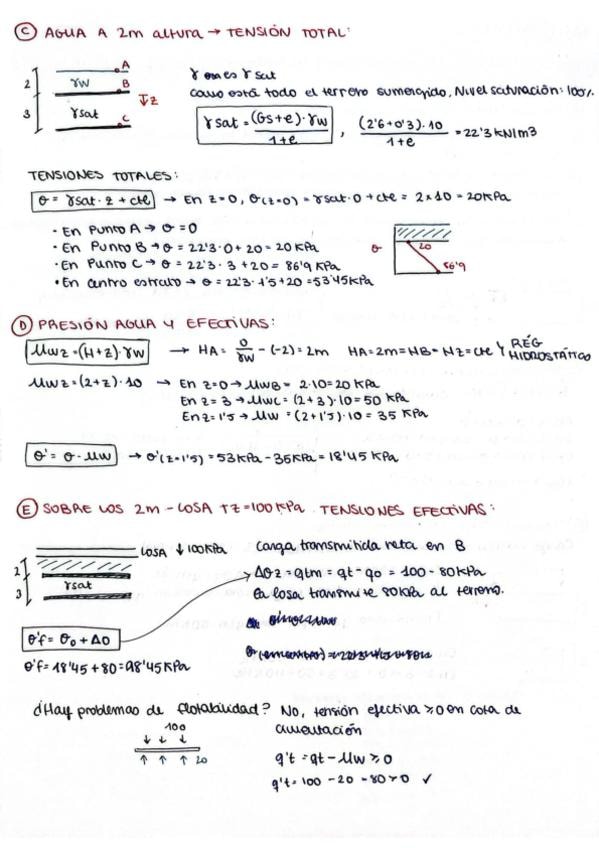 C AGUA A 2m altura → TENSIÓN TOTAL:
A
2 γw B
↓z
3 γsat C
γ ones γ sat
como está todo el terreno sumergido, Nivel saturación: 100%.
γsat = (Gs+e)·γw / 1+e , (2'6+0'3)·10 / 1+e = 22'3 kN/m3
TENSIONES TOTALES:
σ = γsat · z + cte → En z=0, σ(z=0) = γsat·0 + cte = 2x10 = 20KPa
· En Punto A → σ = 0
· En Punto B → σ = 22'3·0 + 20 = 20 KPa
· En Punto C → σ = 22'3 · 3 + 20 = 86'9 KPa
· En centro estrato → σ = 22'3·1'5 + 20 = 53'45 KPa
σ 20
86'9
D PRESIÓN AGUA Y EFECTIVAS:
μwz = (H+z)·γw → HA = 0/γw - (-2) = 2m HA = 2m = HB = Hz = cte y RÉG HIDROSTÁTICO
μwz = (2+z)·10 → En z=0 → μwB = 2·10 = 20 KPa
En z=3 → μwc = (2+3)·10 = 50 KPa
En z=1'5 → μw = (2+1'5)·10 = 35 KPa
σ' = σ - μw → σ'(z=1'5) = 53KPa - 35KPa = 18'45 KPa
E SOBRE LOS 2m - LOSA TZ=100KPa. TENSIONES EFECTIVAS:
LOSA ↓ 100KPa
2
3 γsat
Carga transmitida neta en B
Δσz = qtm = qt - qo = 100 - 80KPa
La losa transmite 80KPa al terreno.
σ'f = σ'o + Δσ
σ'f = 18'45 + 80 = 98'45 KPa
¿Hay problemas de flotabilidad? No, tensión efectiva ≥ 0 en cota de cimentación
100
↓ ↓ ↓
↑ ↑ ↑ ↑ 20
q't = qt - μw ≥ 0
q't = 100 - 20 = 80 > 0 ✓